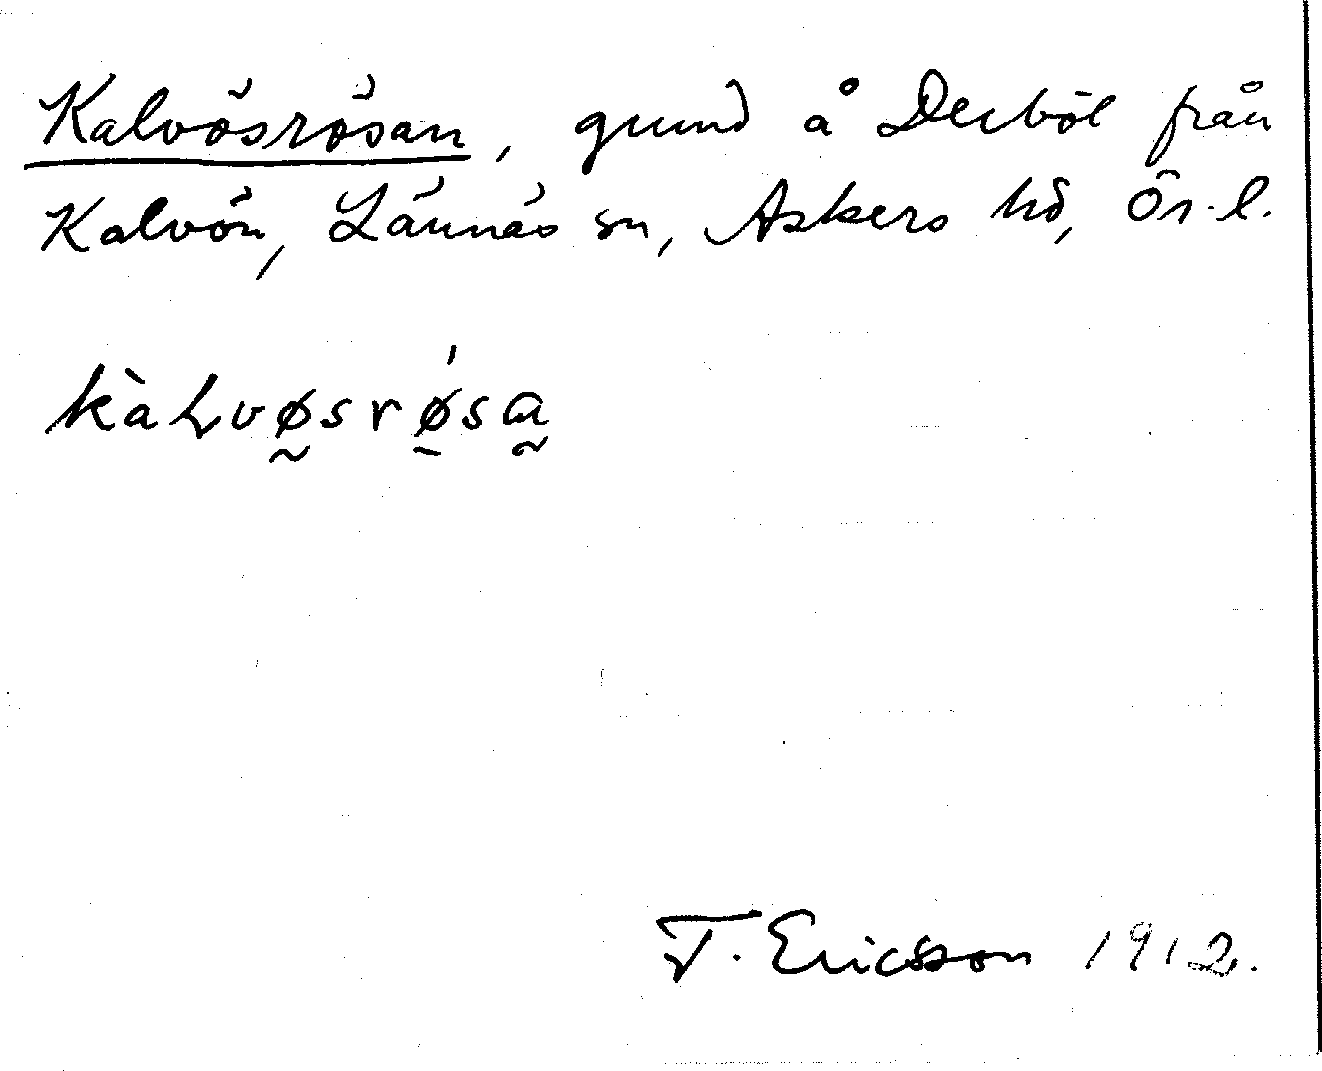 Kalvösrösan, grund å Derböl från
Kalvön, Lännäs sn, Askers hd, Ör. l.
kàLvø̰srǿ̱sa̰
T. Ericsson 1912.